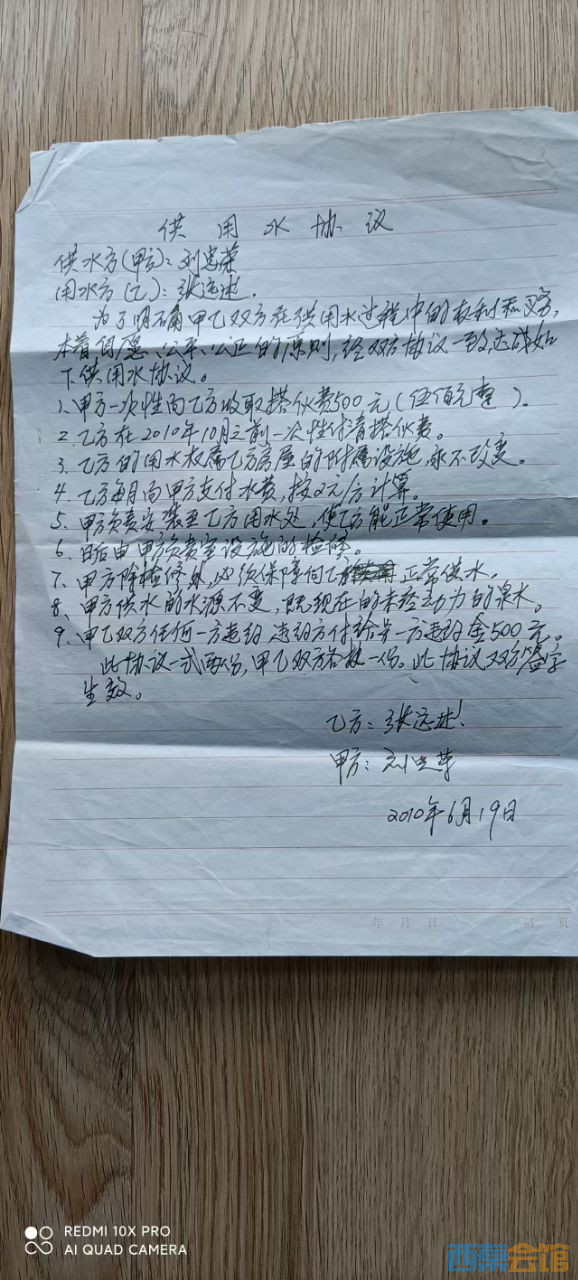 供用水协议
供水方(甲方):刘忠荣
用水方(乙):张远述.
为了明确甲乙双方在供用水过程中的权利和义务,
本着自愿、公平、公正的原则,经双方协议一致,达成如
下供用水协议。
1、甲方一次性向乙方收取搭伙费500元(伍佰元整)。
2、乙方在2010年10月之前一次性付清搭伙费。
3、乙方的用水权属乙方房屋的附属设施,永不改变。
4、乙方每月向甲方支付水费,按2元/方计算。
5、甲方负责安装至乙方用水处,使乙方能正常使用。
6、日后由甲方负责室设施的检修。
7、甲方除检修外,必须保障向乙方正常供水。
8、甲方供水的水源不变,既现在的未经动力的泉水。
9、甲乙双方任何一方违约 违约方付给另一方违约金500元。
此协议一式两份,甲乙双方各执一份。此协议双方签字
生效。
乙方:张远述
甲方:刘忠荣
2010年6月19日
年 月 日
页
REDMI 10X PRO
AI QUAD CAMERA
西渠会馆